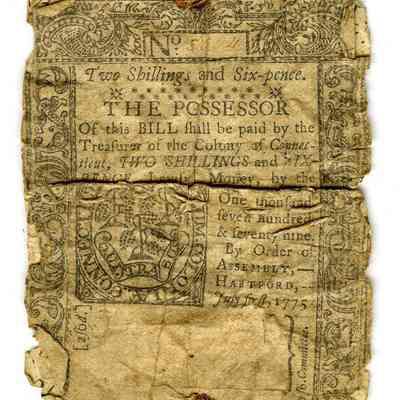 No
Two Shillings and Six-pence.
THE POSSESSOR
Of this BILL shall be paid by the
Treasurer of the Colony of Connec-
ticut, TWO SHILLINGS and SIX-
PENCE, Lawful Money, by the
One thousand
seven hundred
& seventy nine.
By Order of
ASSEMBLY,
HARTFORD,
July first, 1775
CONNEC
COLO
[2/6d.]
Committee.